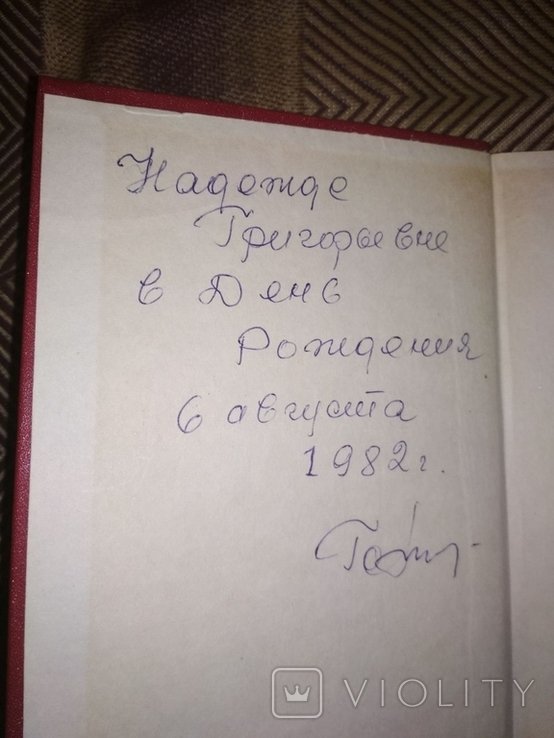 Надежде
Григорьевне
в День
Рождения
6 августа
1982 г.
VIOLITY